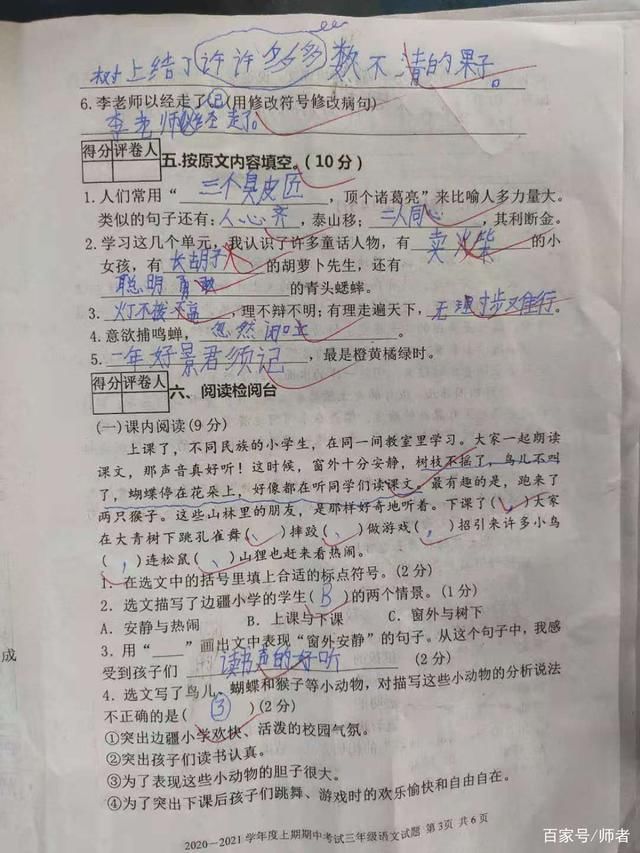 树上结了许许多多数不清的果子。
6.李老师以经走了(用修改符号修改病句)
李老师已经走了。
得分 评卷人
五.按原文内容填空。(10分)
1.人们常用“三个臭皮匠,顶个诸葛亮”来比喻人多力量大。
类似的句子还有:人心齐,泰山移;二人同心,其利断金。
2.学习这几个单元,我认识了许多童话人物,有卖火柴的小
女孩,有长胡子的胡萝卜先生,还有
聪明勇敢的青头蟋蟀。
3.灯不拨不亮,理不辩不明;有理走遍天下,无理寸步难行。
4.意欲捕鸣蝉,忽然闭口立。
5.一年好景君须记,最是橙黄橘绿时。
得分 评卷人
六、阅读检阅台
(一)课内阅读(9分)
上课了,不同民族的小学生,在同一间教室里学习。大家一起朗读
课文,那声音真好听!这时候,窗外十分安静,树枝不摇了,鸟儿不叫
了,蝴蝶停在花朵上,好像都在听同学们读课文。最有趣的是,跑来了
两只猴子。这些山林里的朋友,是那样好奇地听着。下课了(,)大家
在大青树下跳孔雀舞(、)摔跤(、)做游戏(,)招引来许多小鸟
(,)连松鼠(、)山狸也赶来看热闹。
1.在选文中的括号里填上合适的标点符号。(2分)
2.选文描写了边疆小学的学生(B)的两个情景。(1分)
A.安静与热闹 B.上课与下课 C.窗外与树下
3.用“——”画出文中表现“窗外安静”的句子。从这个句中,我感
受到孩子们读书声的好听(2分)
4.选文写了鸟儿、蝴蝶和猴子等小动物,对描写这些小动物的分析说法
不正确的是(③)(2分)
①突出边疆小学欢快、活泼的校园气氛。
②突出孩子们读书认真。
③为了表现这些小动物的胆子很大。
④为了突出下课后孩子们跳舞、游戏时的欢乐愉快和自由自在。
2020—2021学年度上期期中考试三年级语文试题 第3页 共6页
成
百家号/师者